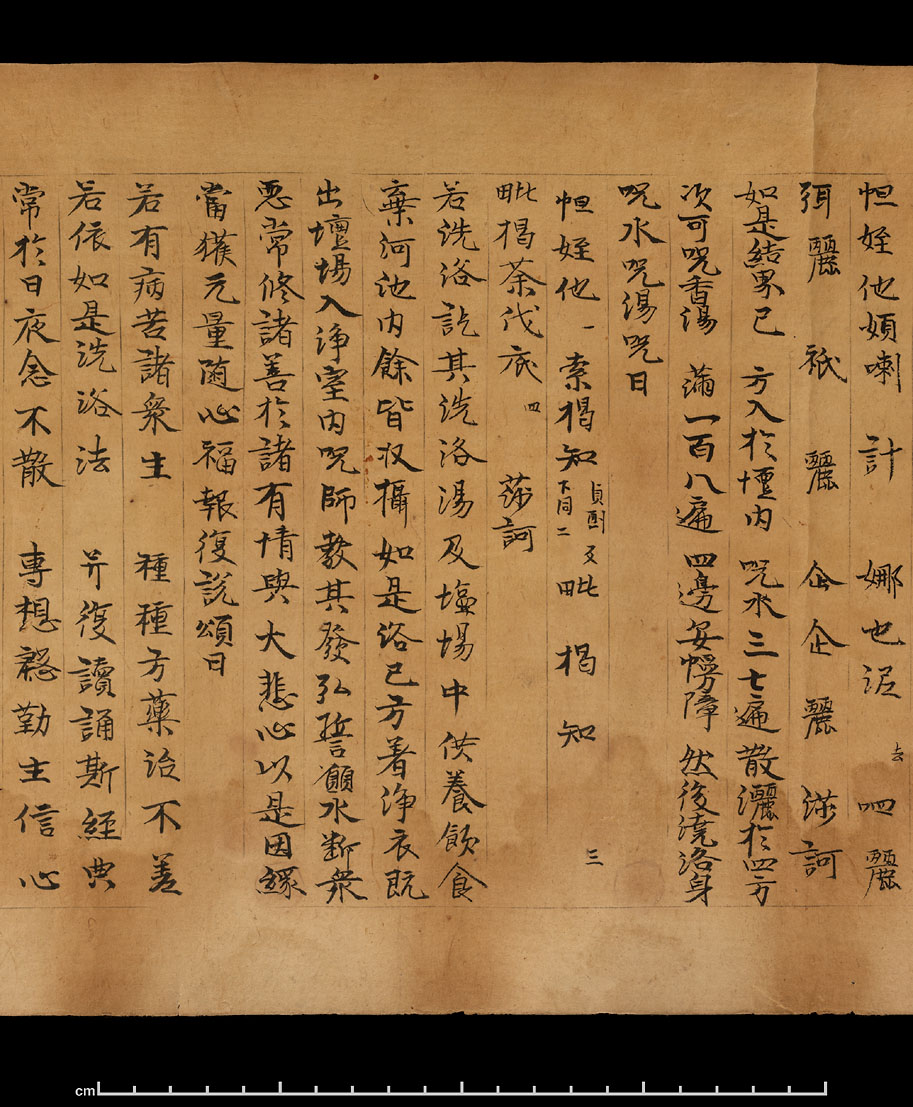 怛姪他頞喇計 娜也泥去 呬麗
弭麗 祇麗 企企麗 莎訶
如是結界已 方入於壇內 呪水三七遍 散灑於四方
次可呪香湯 滿一百八遍 四邊安幔障 然後澆浴身
呪水呪湯呪曰
怛姪他一索揭知貞勵反下同二毗揭知三
毗揭荼伐底四 莎訶
若洗浴訖其洗浴湯及壇場中供養飲食
棄河池內餘皆收攝如是浴已方著淨衣既
出壇場入淨室內呪師教其發弘誓願永斷衆
惡常修諸善於諸有情與大悲心以是因緣
當獲无量随心福報復說頌曰
若有病苦諸衆生 種種方藥治不差
若依如是洗浴法 并復讀誦斯經典
常於日夜念不散 專想慇勤生信心
cm